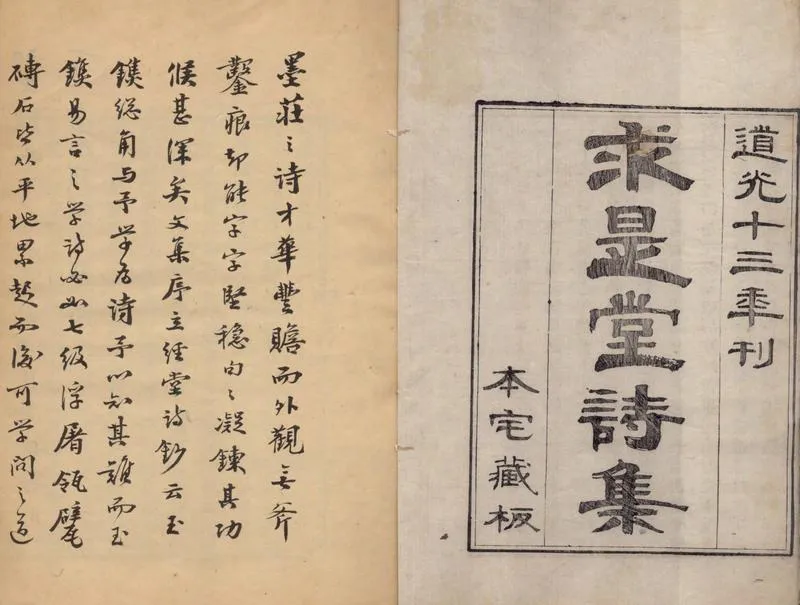 道光十三秊刊
求是堂詩集
本宅藏板
墨莊之詩才華豐贍而外觀無斧
鑿痕却能字字堅穩句々凝鍊其功
候甚深矣文集序立經堂诗鈔云玉
鐎總角与予学为诗予以知其難而玉
鐎易言之学诗必如七級浮屠瓴甓
磚石皆从平地累起而後可学问之道